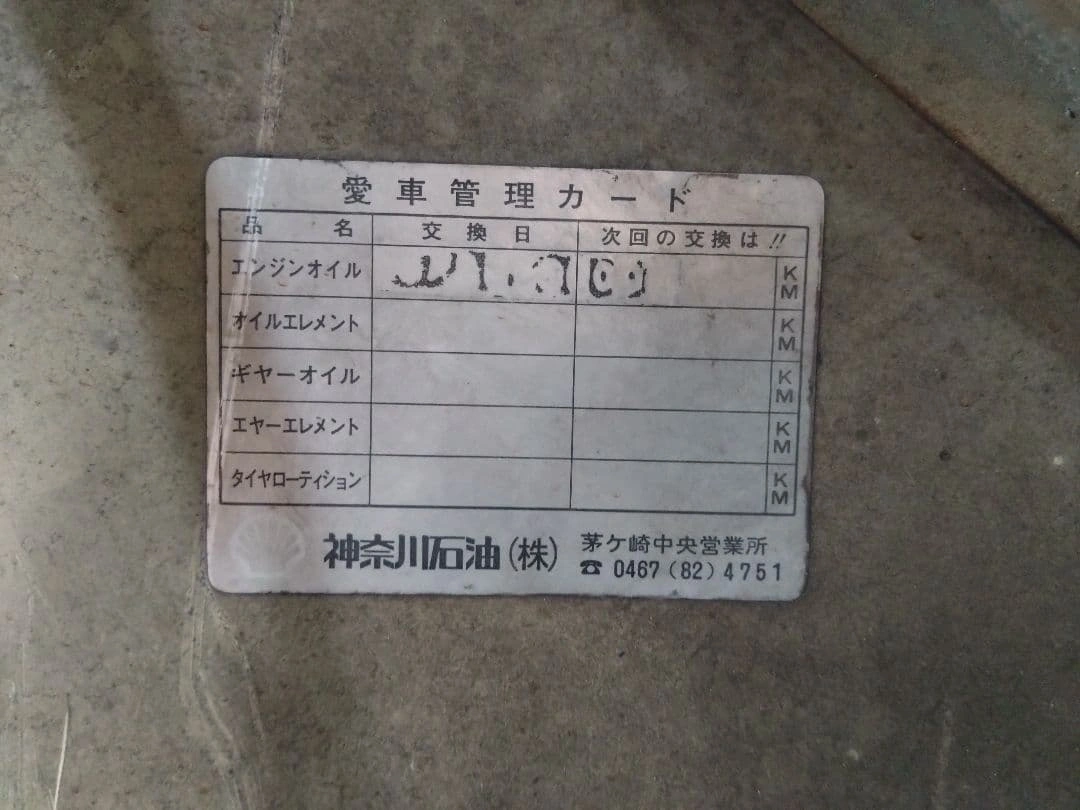 愛車管理カード
品名 交換日 次回の交換は!!
エンジンオイル KM
オイルエレメント KM
ギヤーオイル KM
エヤーエレメント KM
タイヤローティション KM
神奈川石油(株) 茅ケ崎中央営業所
☎ 0467(82)4751